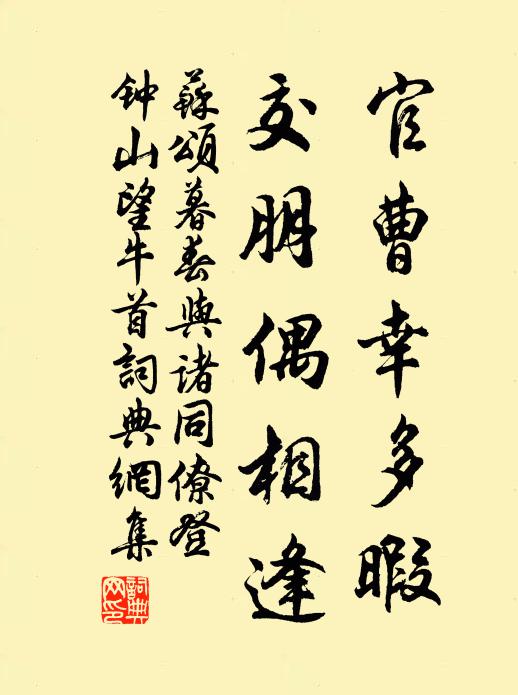 官曹幸多暇
交朋偶相逢
蘇頌暮春與诸同僚登
钟山望牛首詞典網集
詞典网印